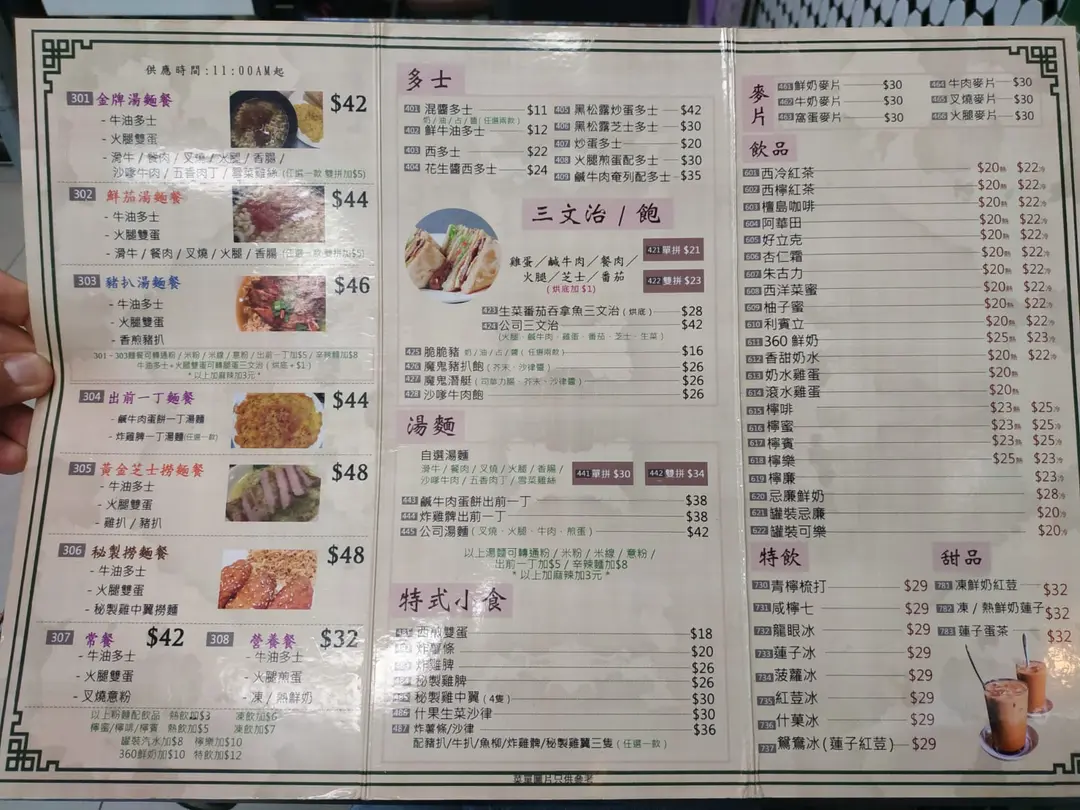 供應時間:11:00AM起
301 金牌湯麵餐 $42
- 牛油多士
- 火腿雙蛋
- 滑牛/餐肉/叉燒/火腿/香腸/
沙嗲牛肉/五香肉丁/雪菜雞絲(任選一款 雙拼加$5)
302 鮮茄湯麵餐 $44
- 牛油多士
- 火腿雙蛋
- 滑牛/餐肉/叉燒/火腿/香腸(任選一款 雙拼加$5)
303 豬扒湯麵餐 $46
- 牛油多士
- 火腿雙蛋
- 香煎豬扒
301-303麵餐可轉通粉/米粉/米線/意粉/出前一丁加$5/辛辣麵加$8
牛油多士+火腿雙蛋可轉腿蛋三文治(烘底+$1)
*以上加麻辣加3元*
304 出前一丁麵餐 $44
- 鹹牛肉蛋餅一丁湯麵
- 炸雞脾一丁湯麵(任選一款)
305 黃金芝士撈麵餐 $48
- 牛油多士
- 火腿雙蛋
- 雞扒/豬扒
306 秘製撈麵餐 $48
- 牛油多士
- 火腿雙蛋
- 秘製雞中翼撈麵
307 常餐 $42
- 牛油多士
- 火腿雙蛋
- 叉燒意粉
308 營養餐 $32
- 牛油多士
- 火腿煎蛋
- 凍/熱鮮奶
以上粉麵配飲品 熱飲加$3 凍飲加$6
檸蜜/檸啡/檸賓 熱飲加$5 凍飲加$7
罐裝汽水加$8 檸樂加$10
360鮮奶加$10 特飲加$12
多士
401 混醬多士 $11
奶/油/占/醬(任選兩款)
402 鮮牛油多士 $12
403 西多士 $22
404 花生醬西多士 $24
405 黑松露炒蛋多士 $42
406 黑松露芝士多士 $30
407 炒蛋多士 $20
408 火腿煎蛋配多士 $30
409 鹹牛肉奄列配多士 $35
三文治/飽
雞蛋/鹹牛肉/餐肉/
火腿/芝士/番茄
(烘底加$1)
421 單拼 $21
422 雙拼 $23
423 生菜番茄吞拿魚三文治(烘底) $28
424 公司三文治 $42
(火腿、鹹牛肉、雞蛋、番茄、芝士、生菜)
425 脆脆豬 奶/油/占/醬(任選兩款) $16
426 魔鬼豬扒飽(芥末、沙律醬) $26
427 魔鬼潛艇(司華力腸、芥末、沙律醬) $26
428 沙嗲牛肉飽 $26
湯麵
自選湯麵
滑牛/餐肉/叉燒/火腿/香腸/
沙嗲牛肉/五香肉丁/雪菜雞絲
441 單拼 $30
442 雙拼 $34
443 鹹牛肉蛋餅出前一丁 $38
444 炸雞髀出前一丁 $38
445 公司湯麵(叉燒、火腿、牛肉、煎蛋) $42
以上湯麵可轉通粉/米粉/米線/意粉/
出前一丁加$5/辛辣麵加$8
*以上加麻辣加3元*
特式小食
西煎雙蛋 $18
炸薯條 $20
炸雞脾 $26
秘製雞脾 $26
485 秘製雞中翼(4隻) $30
486 什果生菜沙律 $30
487 炸薯條/沙律 $36
配豬扒/牛扒/魚柳/炸雞髀/秘製雞翼三隻(任選一款)
麥片
461 鮮奶麥片 $30
462 牛奶麥片 $30
463 窩蛋麥片 $30
464 牛肉麥片 $30
465 叉燒麥片 $30
466 火腿麥片 $30
飲品
601 西冷紅茶 $20熱 $22冷
602 西檸紅茶 $20熱 $22冷
603 檀島咖啡 $20熱 $22冷
604 阿華田 $20熱 $22冷
605 好立克 $20熱 $22冷
606 杏仁霜 $20熱 $22冷
607 朱古力 $20熱 $22冷
608 西洋菜蜜 $20熱 $22冷
609 柚子蜜 $20熱 $22冷
610 利賓立 $20熱 $22冷
611 360鮮奶 $25熱 $23冷
612 香甜奶水 $20熱 $22冷
613 奶水雞蛋 $20熱
614 滾水雞蛋 $20熱
615 檸啡 $23熱 $25冷
616 檸蜜 $23熱 $25冷
617 檸賓 $23熱 $25冷
618 檸樂 $25熱 $23冷
619 檸廉 $23冷
620 忌廉鮮奶 $28冷
621 罐裝忌廉 $20冷
622 罐裝可樂 $20冷
特飲
730 青檸梳打 $29
731 咸檸七 $29
732 龍眼冰 $29
733 蓮子冰 $29
734 菠蘿冰 $29
735 紅荳冰 $29
736 什菓冰 $29
737 鴛鴦冰(蓮子紅荳) $29
甜品
781 凍鮮奶紅荳 $32
782 凍/熱鮮奶蓮子 $32
783 蓮子蛋茶 $32
菜單圖片只供參考